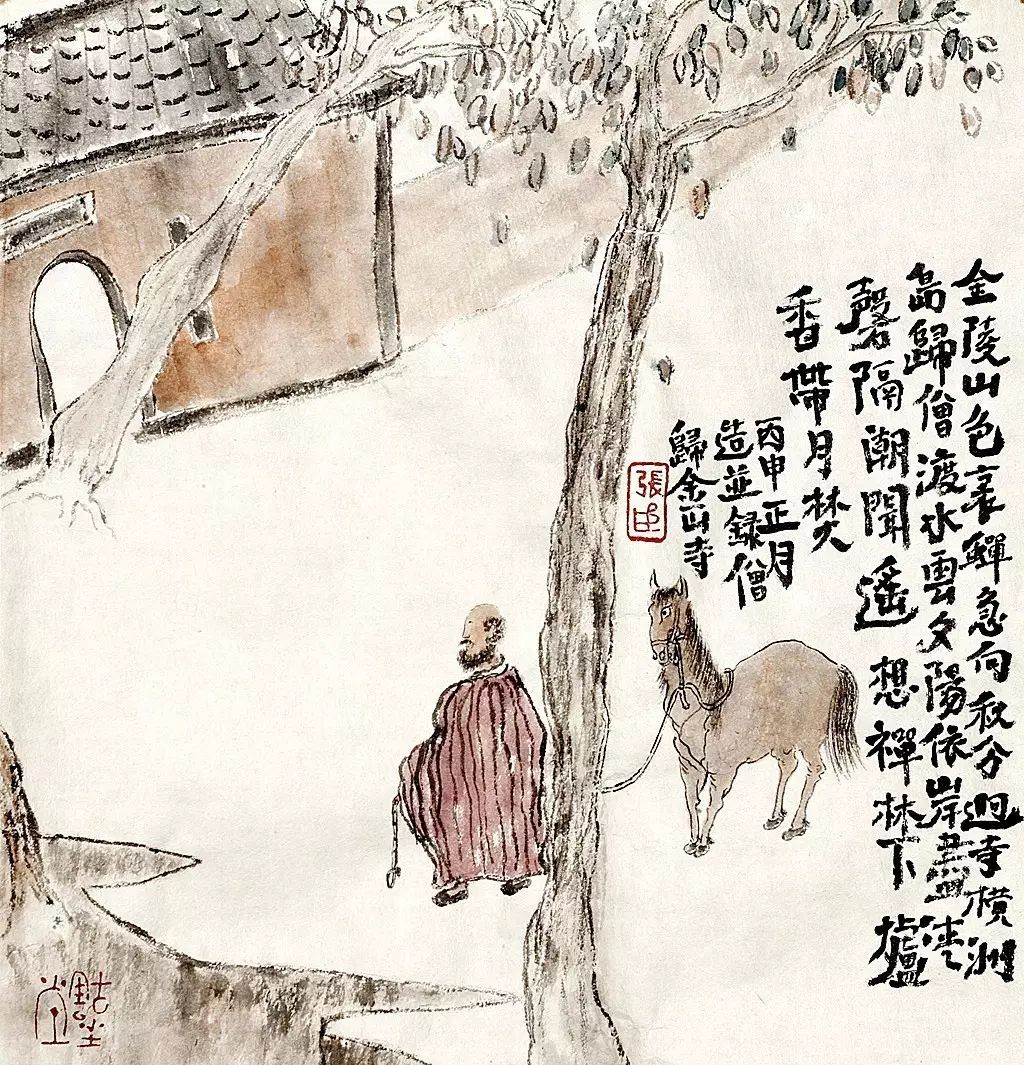 金陵山色裏蟬急向秋分迥寺橫洲
島歸僧渡水雲夕陽依岸盡清
磬隔潮聞遙想禪林下爐
香帶月焚
丙申正月
造並録僧
歸金山寺
張